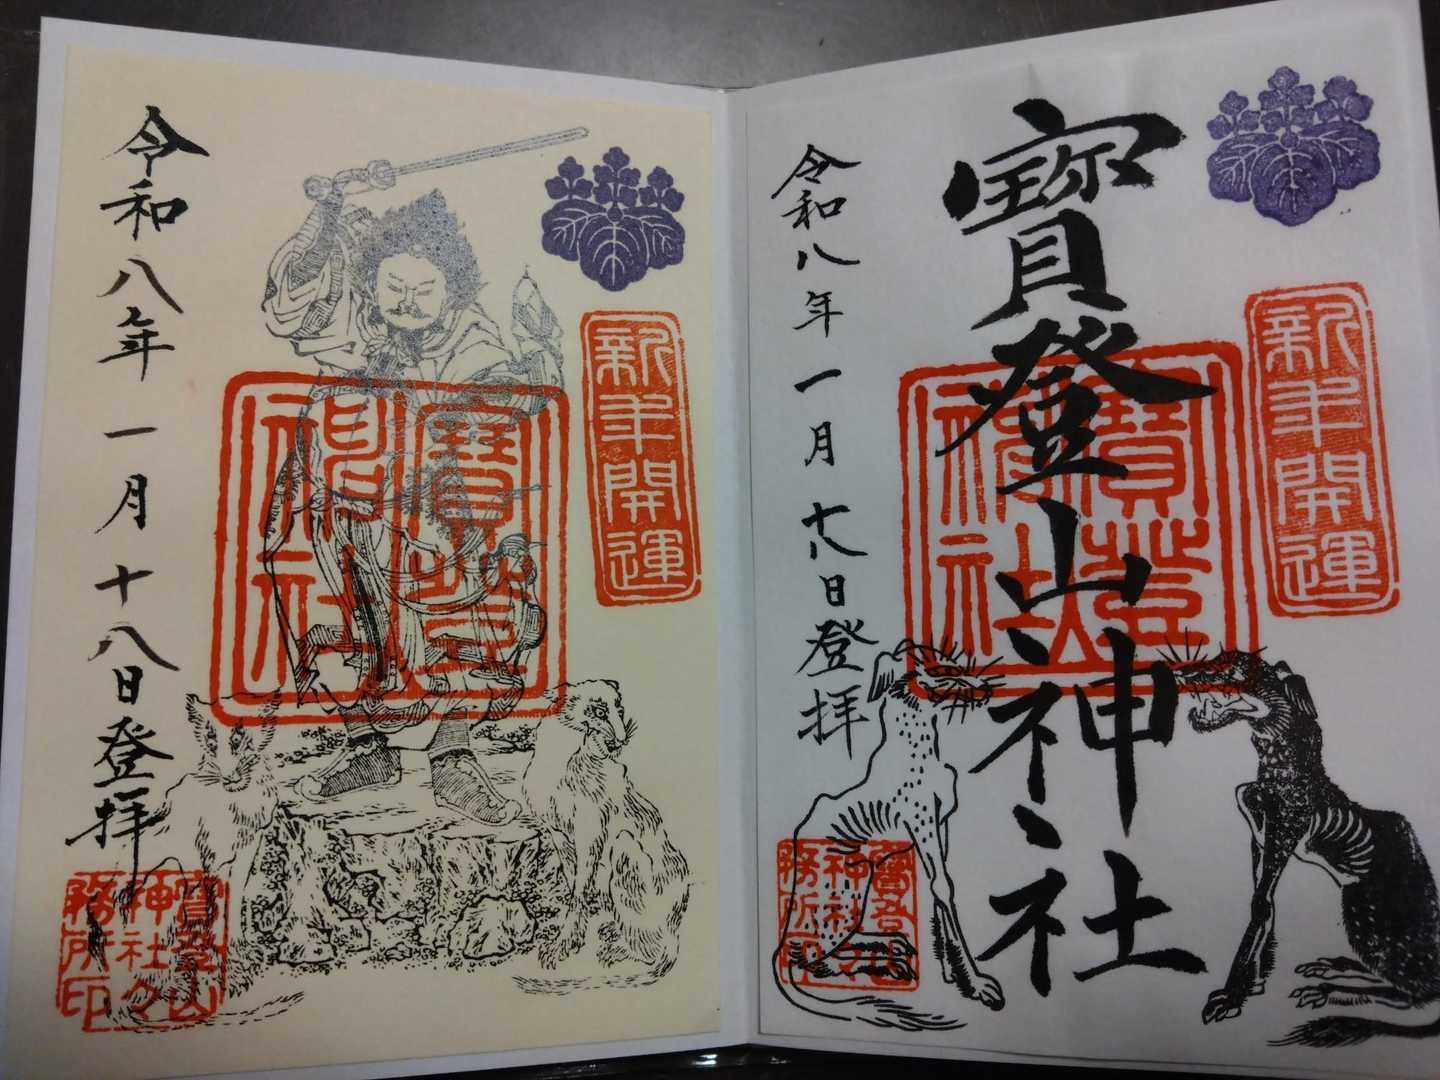 寳登山神社
新年開運
令和八年一月十八日登拝
寳登神社
寳登山神社々務所印
新年開運
令和八年一月十八日登拝
寳登神社
寳登山神社々務所印